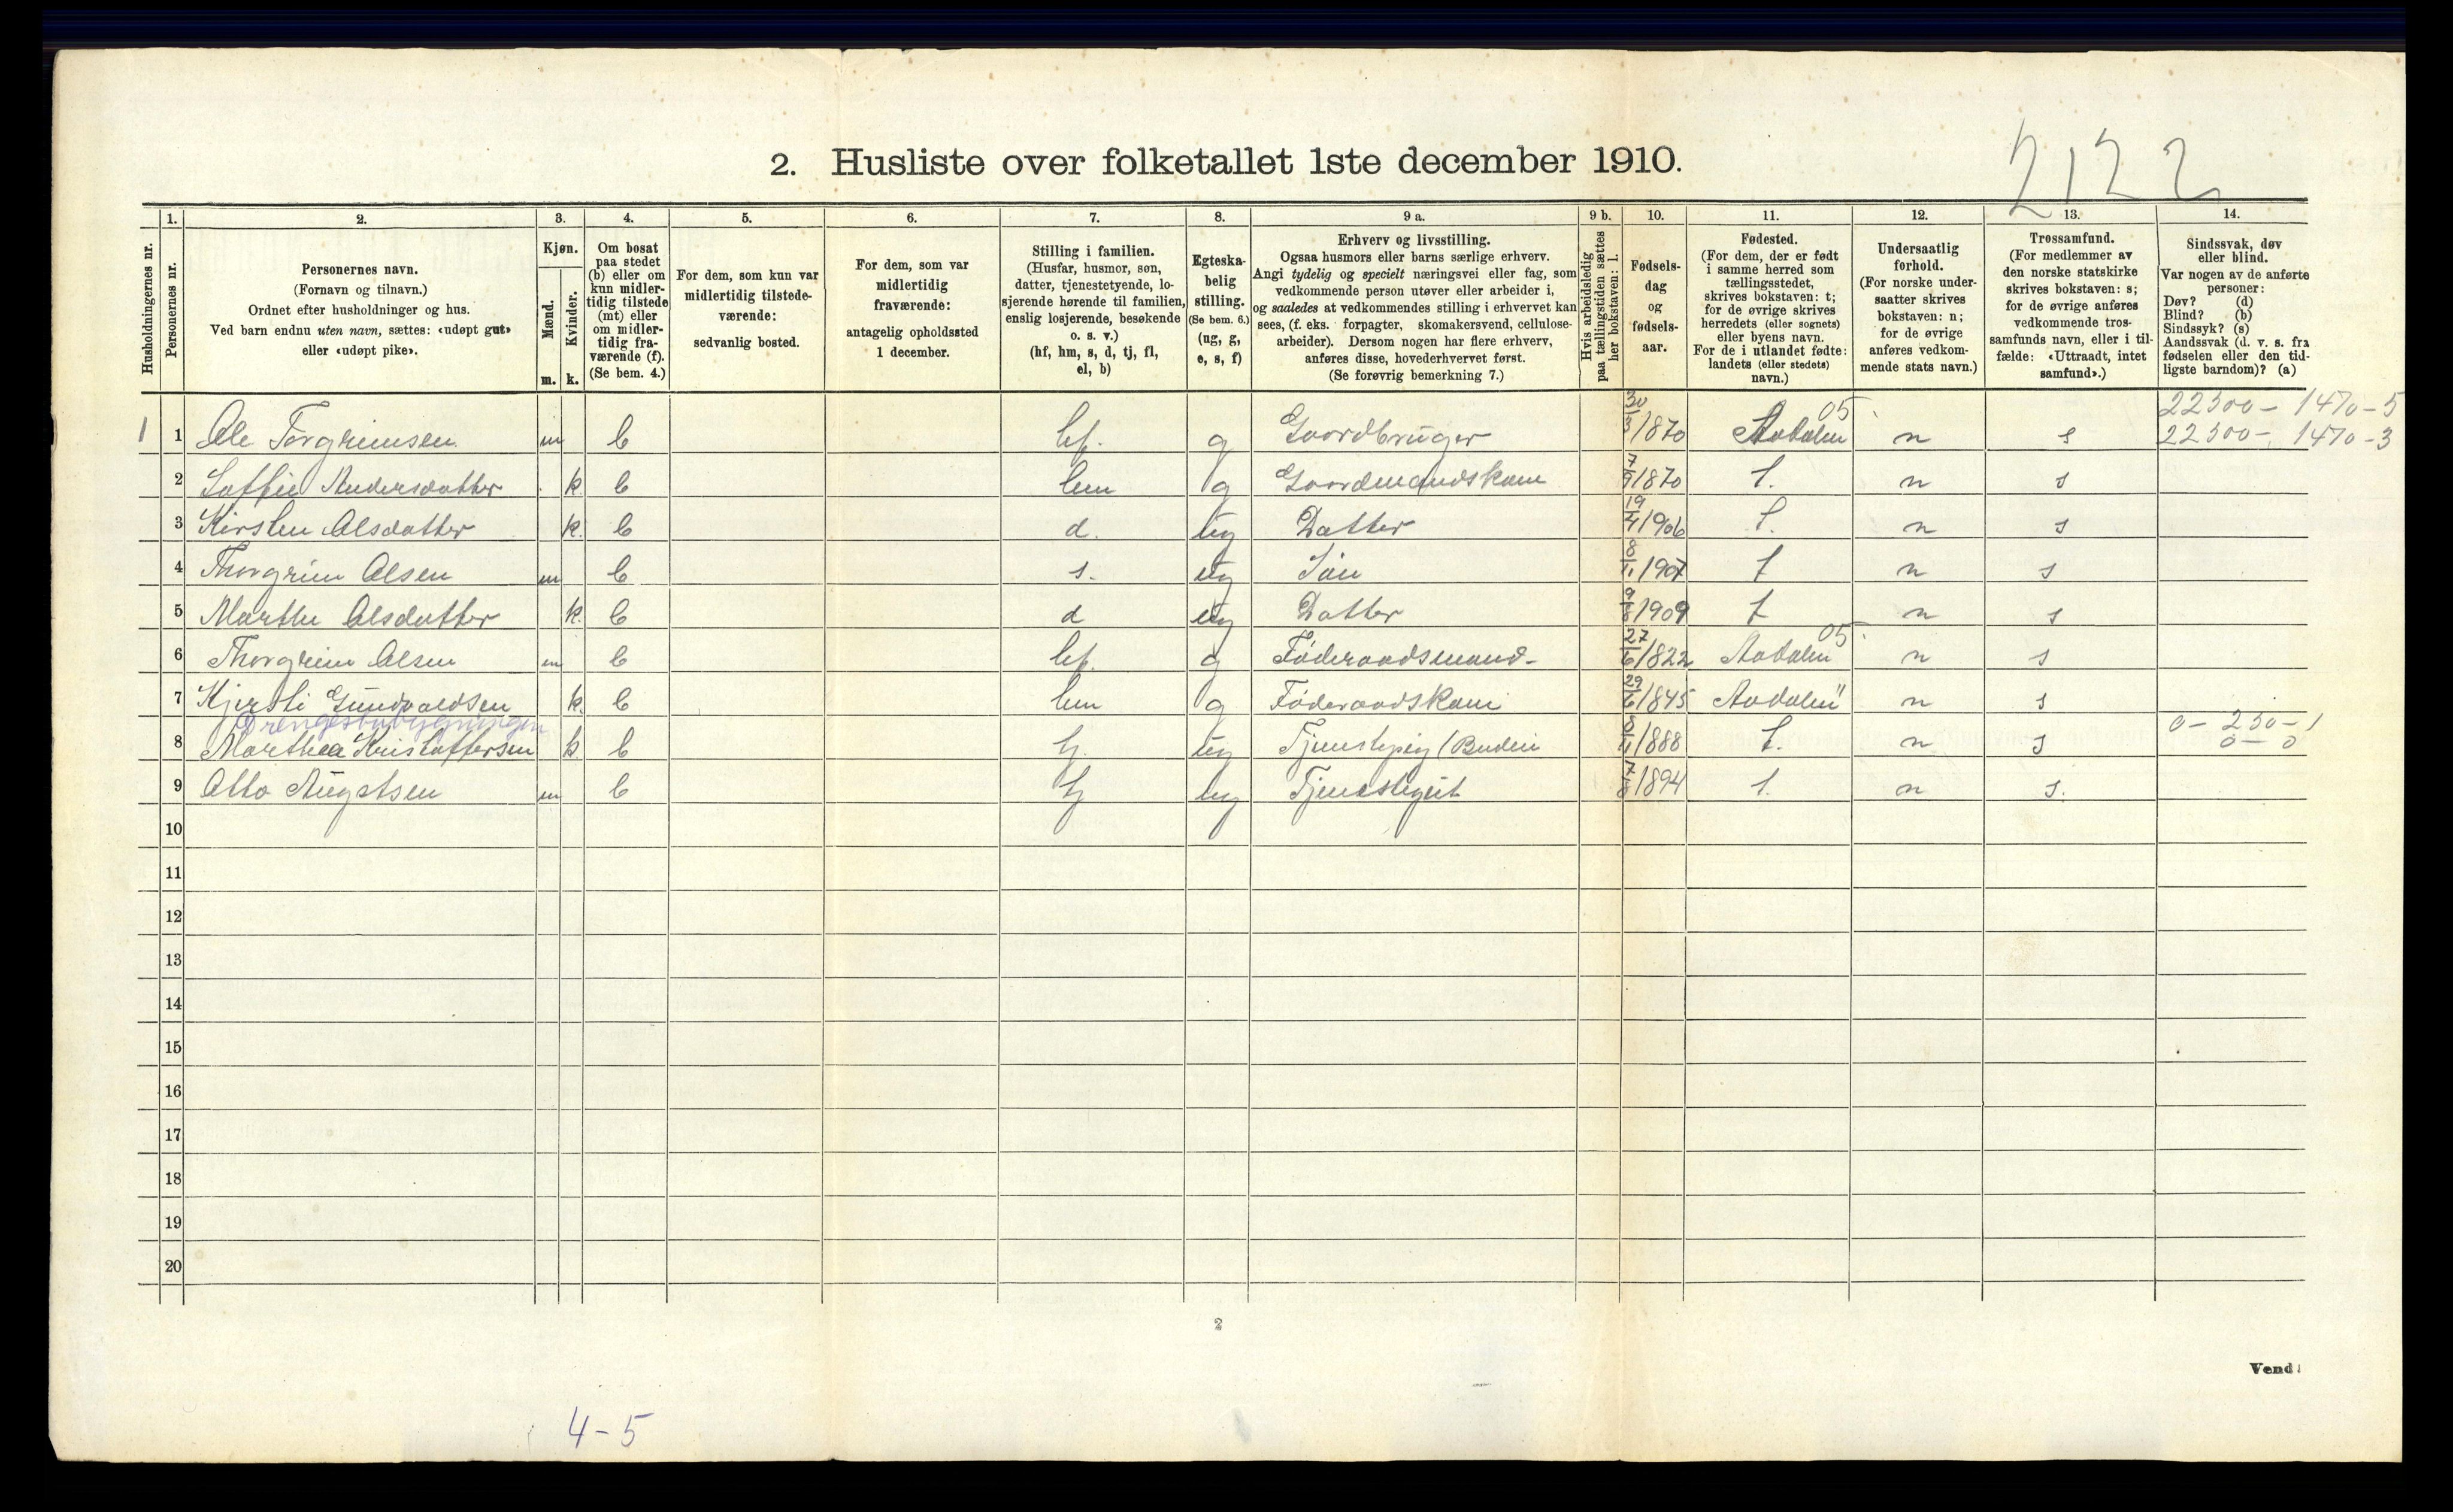 2. Husliste over folketallet 1ste december 1910.
2122
Husholdningernes nr.
1. Personernes nr.
2. Personernes navn.
(Fornavn og tilnavn.)
Ordnet efter husholdninger og hus.
Ved barn endnu uten navn, sættes: «udøpt gut»
eller «udøpt pike».
3. Kjøn.
Mænd. m.
Kvinder. k.
4. Om bosat
paa stedet
(b) eller om
kun midler-
tidig tilstede
(mt) eller
om midler-
tidig fra-
værende (f).
(Se bem. 4.)
5. For dem, som kun var
midlertidig tilstede-
værende:
sedvanlig bosted.
6. For dem, som var
midlertidig
fraværende:
antagelig opholdssted
1 december.
7. Stilling i familien.
(Husfar, husmor, søn,
datter, tjenestetyende, lo-
sjerende hørende til familien,
enslig losjerende, besøkende
o. s. v.)
(hf, hm, s, d, tj, fl,
el, b)
8. Egteska-
belig
stilling.
(Se bem. 6.)
(ug, g,
e, s, f)
9 a. Erhverv og livsstilling.
Ogsaa husmors eller barns særlige erhverv.
Angi tydelig og specielt næringsvei eller fag, som
vedkommende person utøver eller arbeider i,
og saaledes at vedkommendes stilling i erhvervet kan
sees, (f. eks. forpagter, skomakersvend, cellulose-
arbeider). Dersom nogen har flere erhverv,
anføres disse, hovederhvervet først.
(Se forøvrig bemerkning 7.)
9 b. Hvis arbeidsledig
paa tællingstiden sættes
her bokstaven: l.
10. Fødsels-
dag
og
fødsels-
aar.
11. Fødested.
(For dem, der er født
i samme herred som
tællingsstedet,
skrives bokstaven: t;
for de øvrige skrives
herredets (eller sognets)
eller byens navn.
For de i utlandet fødte:
landets (eller stedets)
navn.)
12. Undersaatlig
forhold.
(For norske under-
saatter skrives
bokstaven: n;
for de øvrige
anføres vedkom-
mende stats navn.)
13. Trossamfund.
(For medlemmer av
den norske statskirke
skrives bokstaven: s;
for de øvrige anføres
vedkommende tros-
samfunds navn, eller i til-
fælde: «Uttraadt, intet
samfund».)
14. Sindssvak, døv
eller blind.
Var nogen av de anførte
personer:
Døv? (d)
Blind? (b)
Sindssyk? (s)
Aandssvak (d. v. s. fra
fødselen eller den tid-
ligste barndom)? (a)
05 22300 - 1470 - 5
1 1 Ole Torgrimsen m b hf. g Gaardbruger 30/3 1870 Aadalen n s 22300 - 1470 - 3
2 Andersdatter k b hm g Gaardmandskone 7/9 1870 t. n s
3 Kirsten Olsdatter k. b d. ug Datter 19/4 1906 t. n s
4 Thorgrim Olsen m b s. ug Søn 8/11 1907 t n s
5 Marthe Olsdatter k. b d ug Datter 9/8 1909 t n s
05
6 Thorgrim Olsen m b hf. g Føderaadsmand 27/6 1822 Aadalen n s
7 Kjersti Gundvaldsen k. b hm g Føderaadskone 29/6 1845 Aadalen " n s
Drengestubygningen 0 - 250 - 1
8 Marthea Kristoffersen k. b tj. ug Tjenestepig (Budeie 8/11 1888 t. n s 0 - 0
9 Otto Augstsen m b tj ug Tjenestegut 7/8 1894 t. n s.
10
11
12
13
14
15
16
17
18
19
20
2
Vend!
4-5